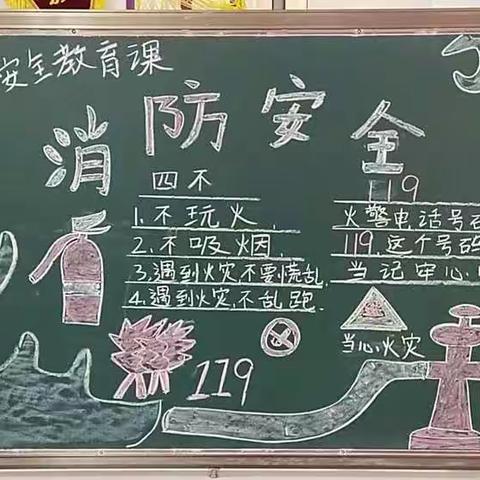 安全教育课
消防安全
四不
1.不玩火
2.不吸烟
3.遇到火灾,不要慌乱
4.遇到火灾,不乱跑.
119
火警电话号
119,这个号码
当记牢心
当心火灾
119